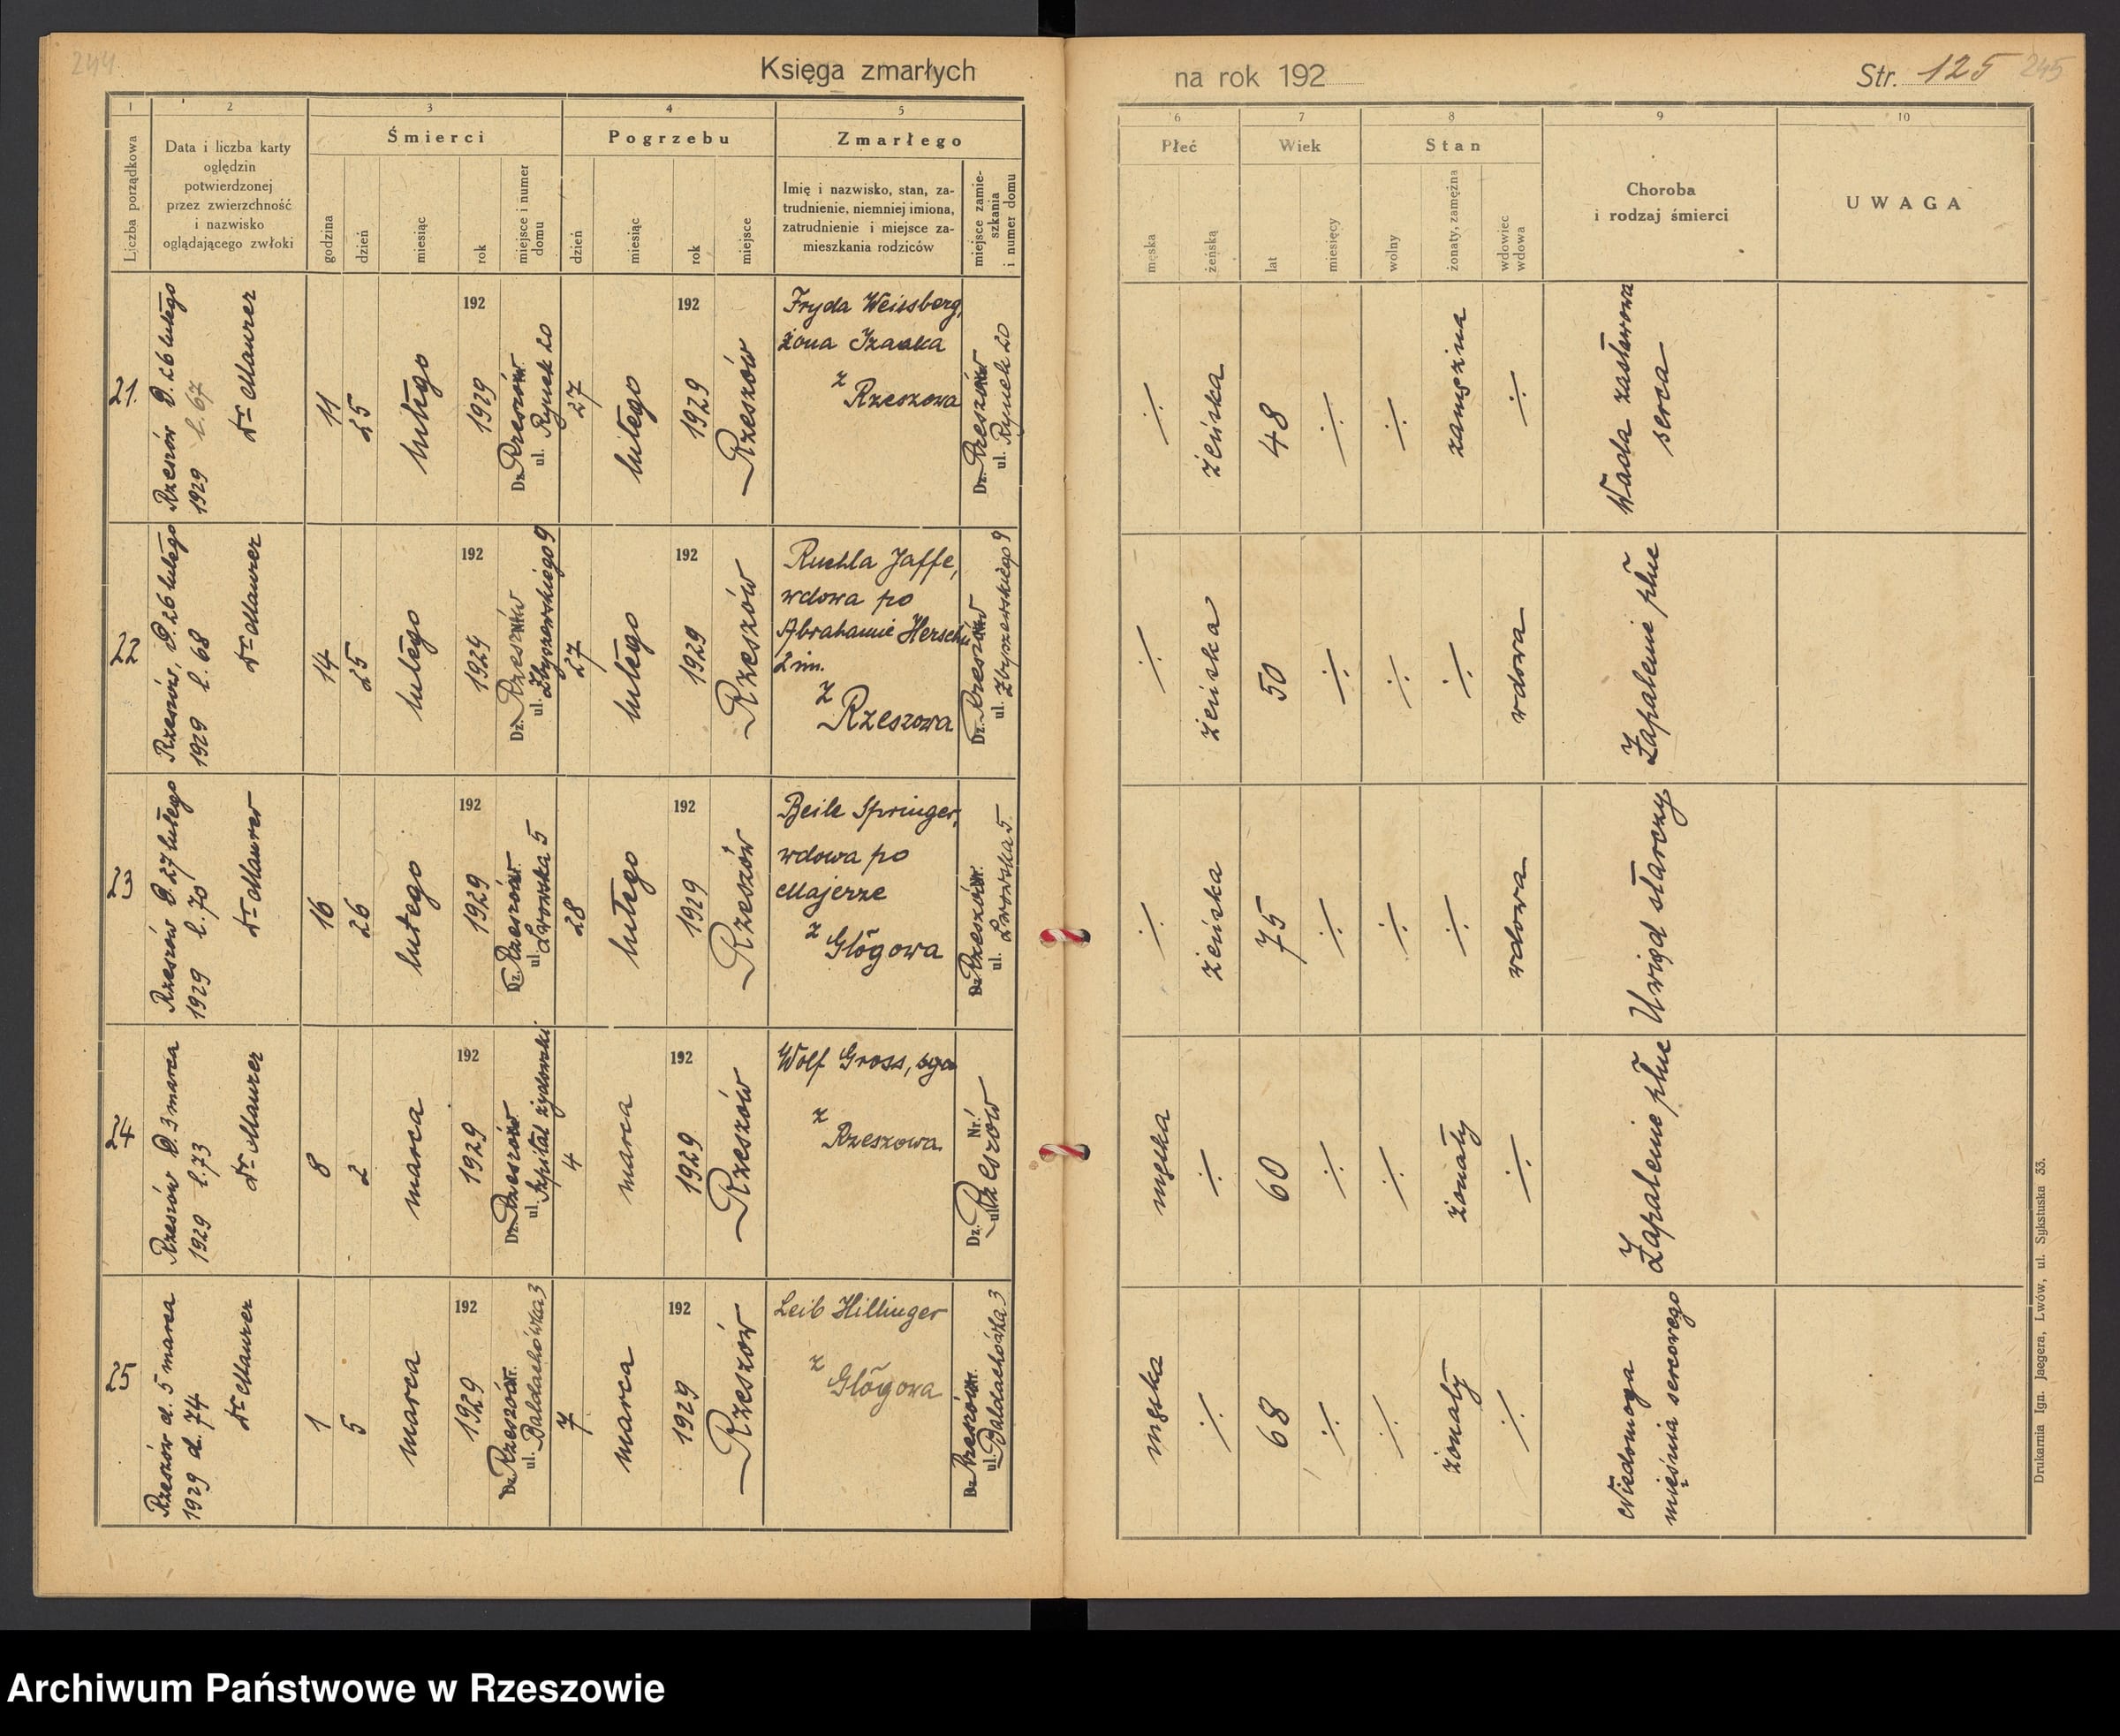 244
Księga zmarłych
na rok 192
Str. 125 245
1
2
3
4
5
6
7
8
9
10
Liczba porządkowa
Data i liczba karty
oględzin
potwierdzonej
przez zwierzchność
i nazwisko
oglądającego zwłoki
Śmierci
godzina
dzień
miesiąc
rok
miejsce i numer
domu
Pogrzebu
dzień
miesiąc
rok
miejsce
Zmarłego
Imię i nazwisko, stan, za-
trudnienie, niemniej imiona,
zatrudnienie i miejsce za-
mieszkania rodziców
miejsce zamie-
szkania
i numer domu
Płeć
męska
żeńska
Wiek
lat
miesięcy
Stan
wolny
żonaty, zamężna
wdowiec
wdowa
Choroba
i rodzaj śmierci
UWAGA
21.
Rzeszów D. 26 lutego
1929 l. 67
Dr Maurer
11
25
lutego
192
1929
Dz. Rzeszów
ul. Rynek 20
27
lutego
192
1929
Rzeszów
Fryda Weissberg,
żona Izaaka
z
Rzeszowa
Dz. Rzeszów
ul. Rynek 20
÷
żeńska
48
÷
÷
zamężna
÷
Wada zastawowa
serca
22
Rzeszów, D. 26 lutego
1929 l. 68
Dr Maurer
14
25
lutego
192
1929
Dz. Rzeszów
ul. Zbyszewskiego 9
27
lutego
192
1929
Rzeszów
Ruchla Jaffe,
wdowa po
Abrahamie Herschu
2 im.
z
Rzeszowa
Dz. Rzeszów
ul. Zbyszewskiego 9
÷
żeńska
50
÷
÷
÷
wdowa
Zapalenie płuc
23
Rzeszów D. 27 lutego
1929 l. 70
Dr Maurer
16
26
lutego
192
1929
Dz. Rzeszów Nr.
ul. Lwowska 5
28
lutego
192
1929
Rzeszów
Beile Springer,
wdowa po
Majerze
z
Głogowa
Dz. Rzeszów Nr.
ul. Lwowska 5.
÷
żeńska
75
÷
÷
÷
wdowa
Uwiąd starczy
24
Rzeszów D. 3 marca
1929 l. 73
Dr Maurer
8
2
marca
192
1929
Dz. Rzeszów
ul. Szpital żydowski
4
marca
192
1929
Rzeszów
Wolf Gross,
z
Rzeszowa
Dz. Nr.
ul. Rzeszów
męska
÷
60
÷
÷
żonaty
÷
Zapalenie płuc
25
Rzeszów d. 5 marca
1929 d. 74
Dr Maurer
1
5
marca
192
1929
Dz. Rzeszów Nr.
ul. Baldachówka 3
7
marca
192
1929
Rzeszów
Leib Hillinger
z
Głogowa
Dz. Rzeszów Nr.
ul. Baldachówka 3
męska
÷
68
÷
÷
żonaty
÷
Niedomoga
mięśnia sercowego
Drukarnia Ign. Jaegera, Lwów, ul. Sykstuska 33.
Archiwum Państwowe w Rzeszowie